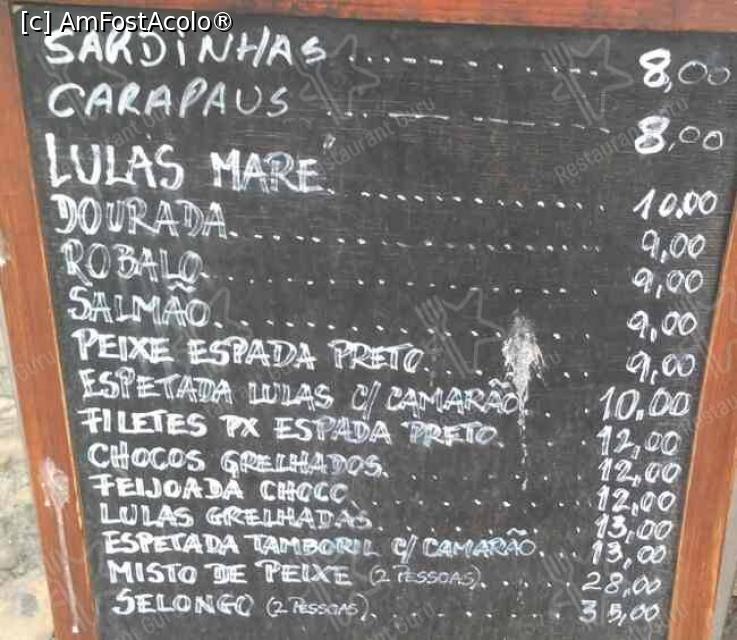 [c] AmFostAcolo®
SARDINHAS ........ 8,00
CARAPAUS ........ 8,00
LULAS MARE ........ 10,00
DOURADA ........ 9,00
ROBALO ........ 9,00
SALMÃO ........ 9,00
PEIXE ESPADA PRETO ........ 9,00
ESPETADA LULAS C/ CAMARÃO ... 10,00
FILETES PX ESPADA PRETO .... 12,00
CHOCOS GRELHADOS ........ 12,00
FEIJOADA CHOCO ........ 12,00
LULAS GRELHADAS ........ 13,00
ESPETADA TAMBORIL C/ CAMARÃO ... 13,00
MISTO DE PEIXE (2 PESSOAS) ...... 28,00
SELONGO (2 PESSOAS) ........ 35,00
Restaurant Guru